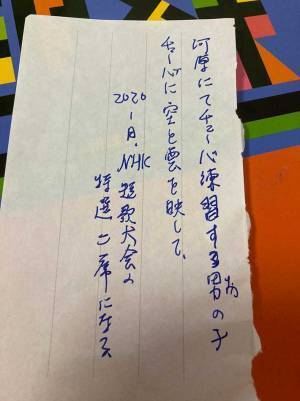 河原にてチューバ練習する男の子
お
チューバに空と雲を映して、
2020
1月、NHK 短歌大会の
特選二席になる